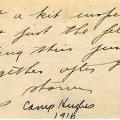 t a kit inspe
just the fe
ing this
gether after
storm
Camp Hughes
1916